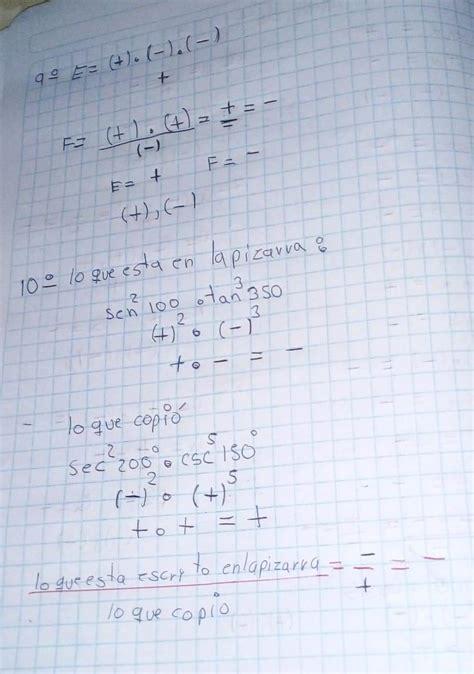 9º E= (+)∘(-)∘(-)
+
F= (+)∘(+) / (-) = + / - = -
E= + F= -
(+),(-)
10º lo que esta en la pizarra:
sen²100∘tan³350
(+)²∘(-)³
+∘- = -
- lo que copió
sec²200°∘csc⁵150°
(-)²∘(+)⁵
+∘+ = +
lo que esta escrito en la pizarra = - / + = -
lo que copio